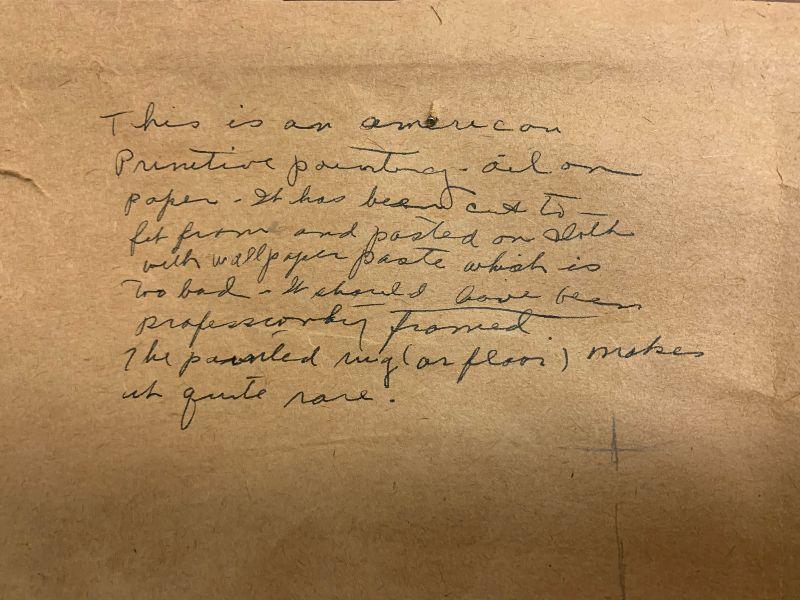 This is an american
Primitive painting - oil on
paper - It has been cut to
fit frame and pasted on cloth
with wallpaper paste which is
too bad - It should have been
professionly framed
The painted rug (or floor) makes
it quite rare.